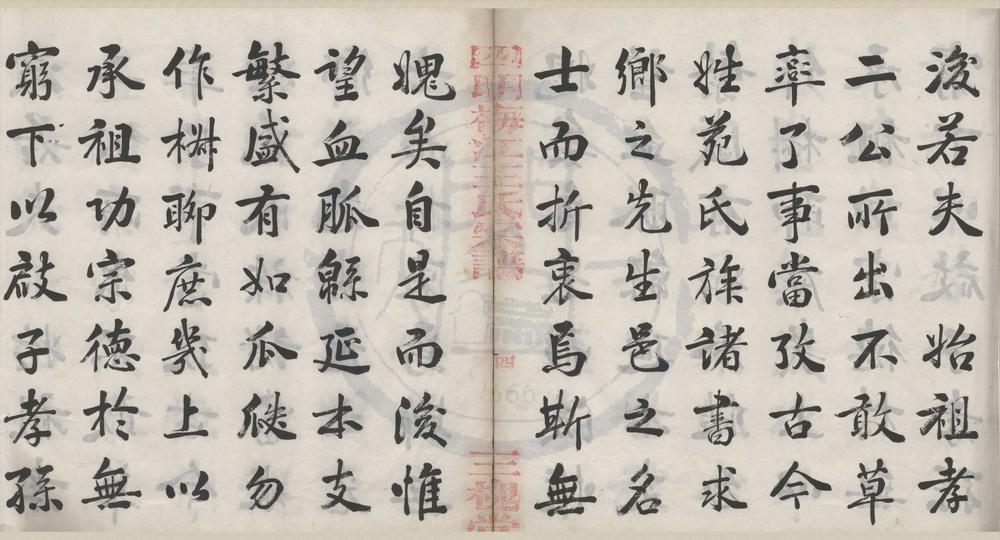 後若夫 始祖孝
二公所出不敢草
率了事當攷古今
姓苑氏族諸書求
鄉之先生邑之名
士而折衷焉斯無
四明梅江王氏宗譜 四 三槐堂
媿矣自是而後惟
望血脈緜延本支
繁盛有如瓜瓞勿
作椒聊庶幾上以
承祖功宗德於無
窮下以啟子孝孫